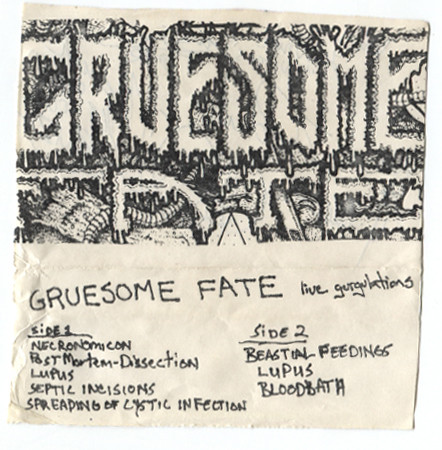 GRUESOME
FATE
GRUESOME FATE live gurgulations
SIDE 1
NECRONOMICON
Post Mortem-Dissection
LUPUS
SEPTIC INCISIONS
SPREADING OF CYSTIC INFECTION
SIDE 2
BEASTIAL FEEDINGS
LUPUS
BLOODBATH